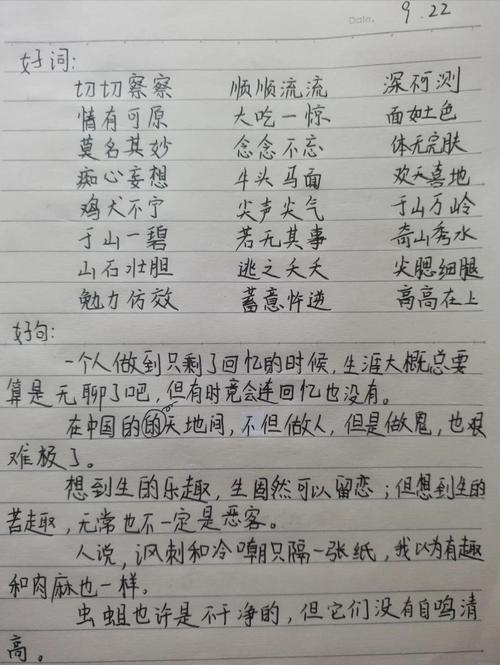 Date. 9.22
好词:
切切察察 顺顺流流 深砢测
情有可原 大吃一惊 面如土色
莫名其妙 念念不忘 体无完肤
痴心妄想 牛头马面 欢天喜地
鸡犬不宁 尖声尖气 于山万岭
于山一碧 若无其事 奇山秀水
山石壮胆 逃之夭夭 尖腮细腿
勉力仿效 蓄意忤逆 高高在上
好句:
一个人做到只剩了回忆的时候,生涯大概总要
算是无聊了吧,但有时竟会连回忆也没有。
在中国的的天地间,不但做人,但是做鬼,也艰
难极了。
想到生的乐趣,生固然可以留恋;但想到生的
苦趣,无常也不一定是恶客。
人说,讽刺和冷嘲只隔一张纸,我以为有趣
和肉麻也一样。
虫蛆也许是不干净的,但它们没有自鸣清
高。